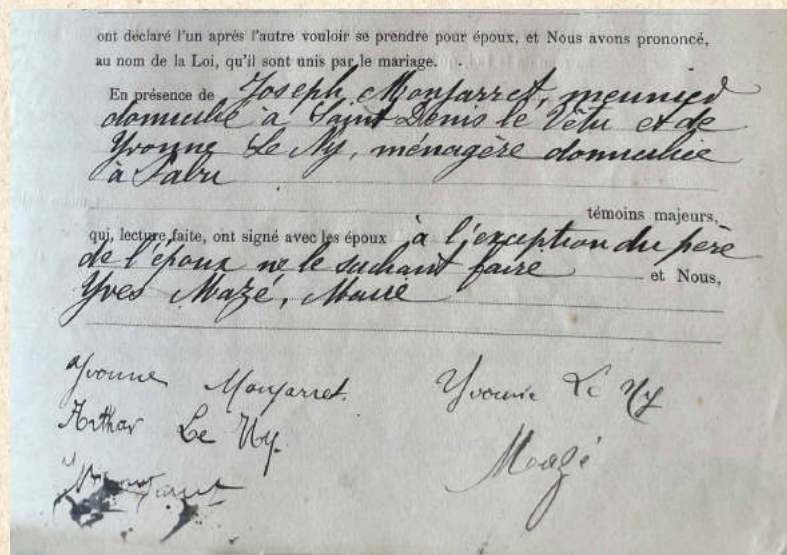 ont déclaré l'un après l'autre vouloir se prendre pour époux, et Nous avons prononcé,
au nom de la Loi, qu'il sont unis par le mariage.
En présence de Joseph Monjarret, meunier
domicilié à Saint Denis le Vêtu et de
Yvonne Le Ny, ménagère domiciliée
à Pabu
témoins majeurs,
qui, lecture faite, ont signé avec les époux à l'exception du père
de l'époux ne le sachant faire et Nous,
Yves Mazé, Maire
Yvonne Monjarret. Yvonne Le Ny
Arthur Le Ny.
Mazé